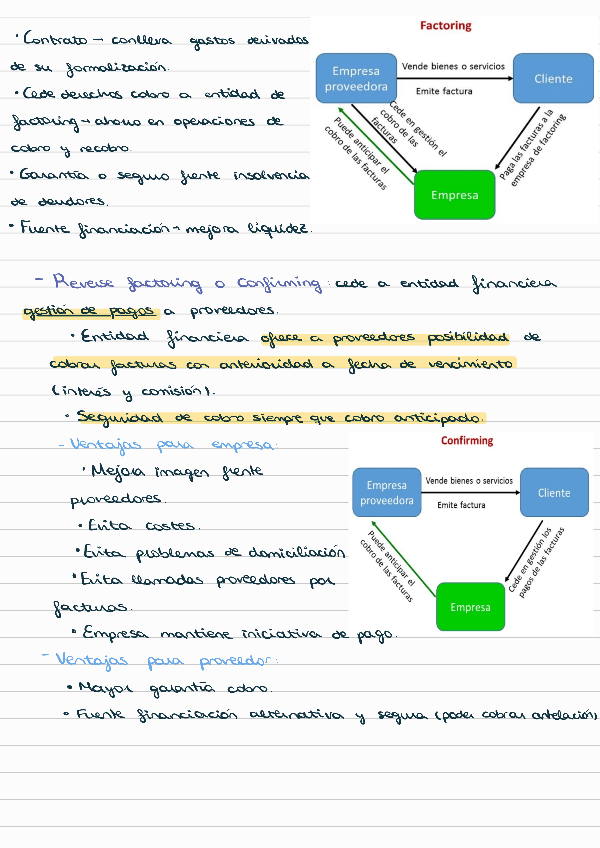 · Contrato → conlleva gastos derivados
de su formalización.
· Cede derechos cobro a entidad de
factoring → ahorro en operaciones de
cobro y recobro.
· Garantía o seguro frente insolvencia
de deudores.
· Fuente financiación → mejora liquidez.
Factoring
Empresa
proveedora
Vende bienes o servicios
Emite factura
Cliente
Cede en gestión el
cobro de las
facturas
Puede anticipar el
cobro de las facturas
Paga las facturas a la
empresa de factoring
Empresa
- Reverse factoring o confirming: cede a entidad financiera
gestión de pagos a proveedores.
· Entidad financiera ofrece a proveedores posibilidad de
cobrar facturas con anterioridad a fecha de vencimiento
(interés y comisión).
· Seguridad de cobro siempre que cobro anticipado.
- Ventajas para empresa:
· Mejora imagen frente
proveedores.
· Evita costes.
· Evita problemas de domiciliación
· Evita llamadas proveedores por
facturas.
· Empresa mantiene iniciativa de pago.
Confirming
Empresa
proveedora
Vende bienes o servicios
Emite factura
Cliente
Puede anticipar el
cobro de las facturas
Cede en gestión los
pagos de las facturas
Empresa
- Ventajas para proveedor:
· Mayor garantía cobro.
· Fuente financiación alternativa y segura (poder cobrar antelación)